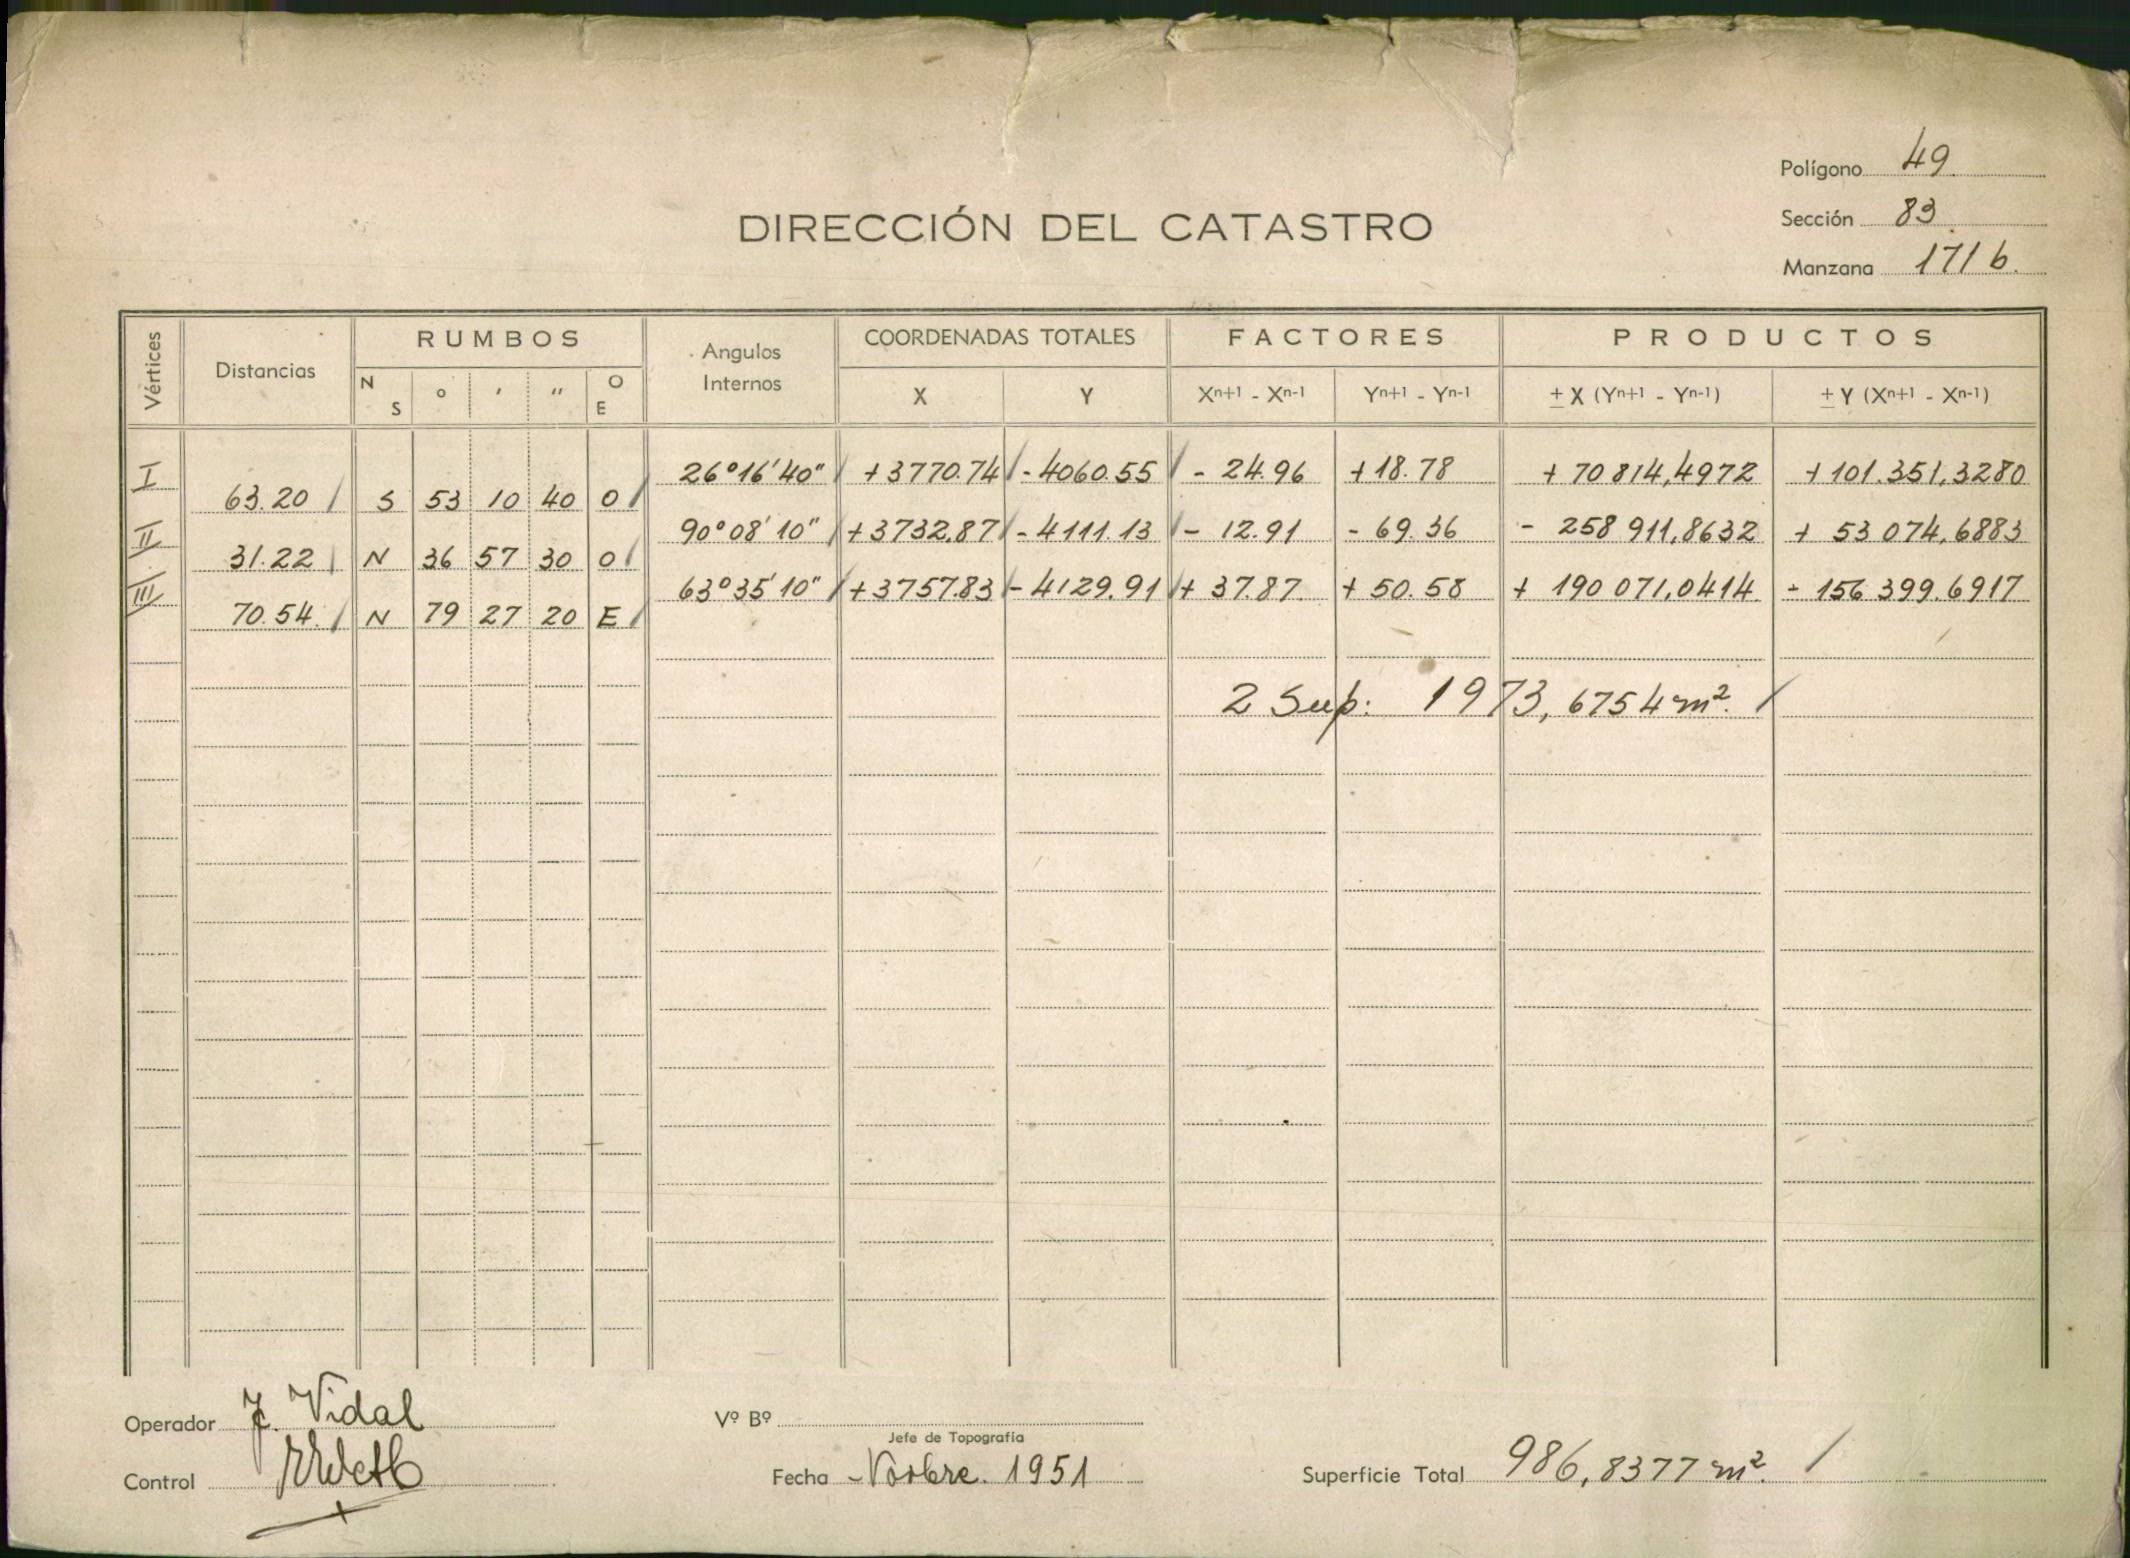 Polígono 49
Sección 83
Manzana 171 b.
DIRECCIÓN DEL CATASTRO
Vértices Distancias RUMBOS Angulos Internos COORDENADAS TOTALES FACTORES PRODUCTOS
N S ° ' " O E X Y Xn+1 - Xn-1 Yn+1 - Yn-1 ± X (Yn+1 - Yn-1) ± Y (Xn+1 - Xn-1)
I 26°16'40" +3770.74 -4060.55 - 24.96 +18.78 + 70 814,4972 + 101.351,3280
63.20 S 53 10 40 O
II 90°08'10" +3732,87 -4111.13 - 12.91 - 69.36 - 258 911,8632 + 53 074,6883
31.22 N 36 57 30 O
III 63°35'10" +3757.83 -4129.91 + 37.87 + 50.58 + 190 071,0414 - 156 399.6917
70.54 N 79 27 20 E
2 Sup: 1973,6754 m².
Operador J. Vidal
Vº Bº
Jefe de Topografía
Control
Fecha Novbre. 1951
Superficie Total 986,8377 m².